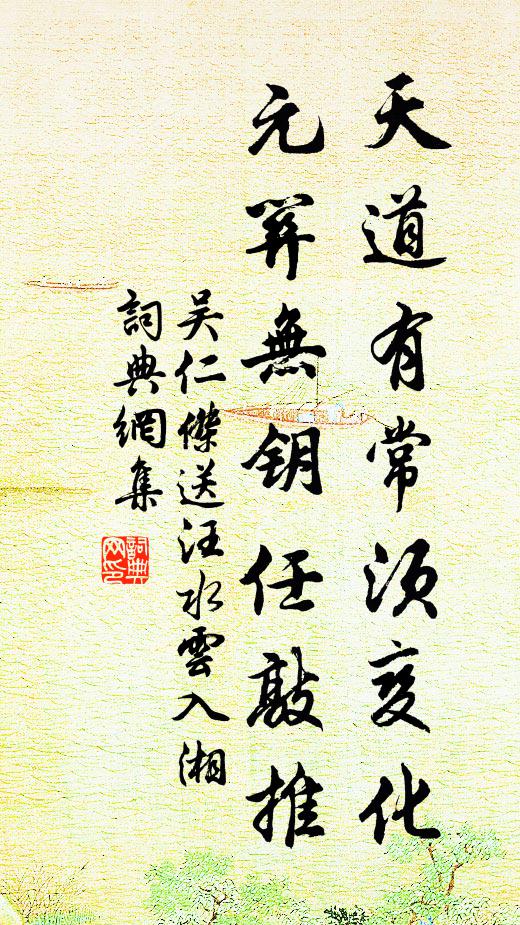 天道有常須变化
元關無钥任敲推
吴仁傑送汪水雲入湘
詞典網集
詞典网印